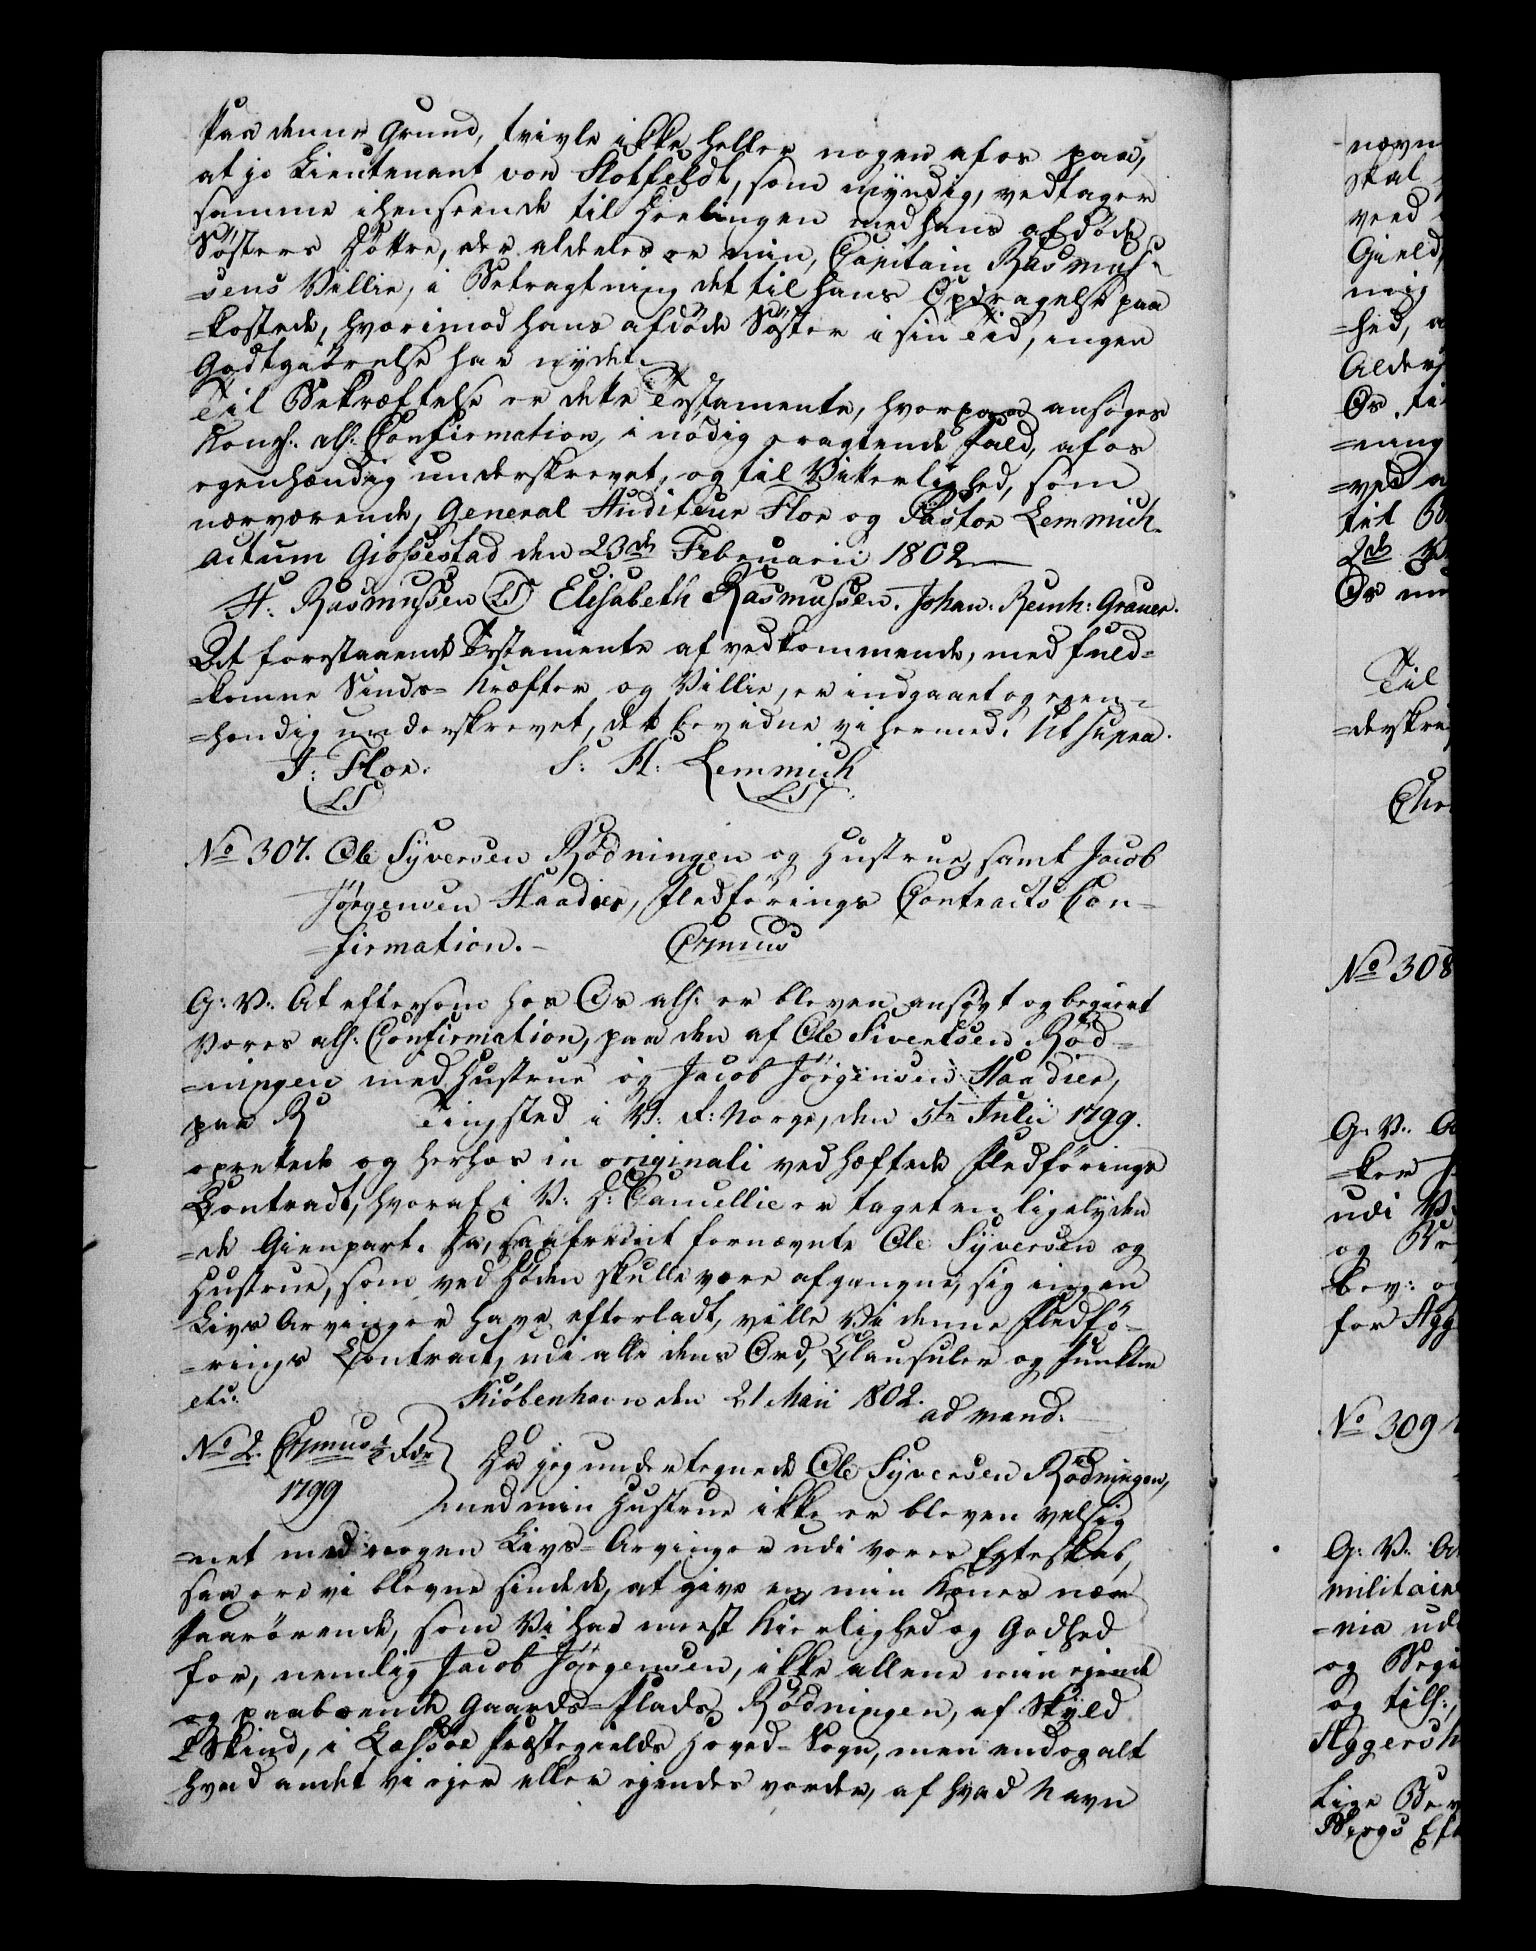 Paa denne Grund, tvivle ikke heller nogen af os paa,
at jo Lieutenant von Slotfeldt, som myndig, vedtager
samme ihenseende til Heelingen med hans afdøde
Søsters Døttre, der aldeles er min, Capitain Rasmus-
=sens Villie, i Betragtning det til hans Opdragelse paa
=kostede, hvorimod hans afdøde Søster i sin Tid, ingen
Godtgiørelse har nydet.
Til Bekræftelse er dette Testamente, hvorpaa ansøges
Kongl. allh: Confirmation, i nødig eragtende Fald, af os
egenhændig underskrevet, og til Vitterlighed, som
nærværende, General Auditeur Flor og Pastor Lemmich.
actum Giossestad den 23de Februarii 1802
H: Rasmussen (LS) Elisabeth Rasmussen. Johan: Reinh: Grauer.
At forestaaende Testamente af vedkommende, med fuld=
=komne Sinds= Kræfter og Villie, er indgaaet og egen=
=hændig underskrevet, det bevidne vi hermed. Ut supra.
J: Flor. S: H: Lemmich
(LS) (LS)
No 307. Ole Syversen Rødningen og Hustrue, samt Jacob
Jörgensen Haadier, Fledførings Contracts Con=
=firmation. Ermus
G: V: At eftersom hos Os allh: er bleven ansøgt og begieret
Vores allh: Confirmation, paa den af Ole Sivertsen Rød=
=ningen med Hustrue og Jacob Jörgensen Haadier,
paa R Tingsted i V: R: Norge, den 5te Julii 1799.
oprettede og herhos in originali vedhæftede Fledførings
Contract, hvoraf i V: D: Cancellie er taget en ligelyden
=de Gienpart. Da, saafremt fornævnte Ole Syversen og
Hustrue, som ved Døden skulle være afgangne, sig ingen
Livs Arvinger have efterladt, ville Vi denne Fledfø=
=rings Contract, udi alle dens Ord, Clausuler og Punkter
etc: Kiöbenhavn den 21 Maii 1802.
ad mand:
No 2. Ermus
1799
Da jeg undertegnede Ole Syversen Rødningen,
med min Hustrue ikke er bleven velsig
=net med nogen Livs=Arvinger udi vores Egteskab,
saa ere vi blevne sindede, at give en min Kones nær
Paarørende, som Vi har meest Kierlighed og Godhed
for, nemlig Jacob Jörgensen, ikke allene min ejende
og paaboende Gaards=Plads Rødningen, af Skyld
Skind, i Lessøe Præstegields Hoved=Sogn, men endog alt
hvad andet vi ejer eller ejendes vorder, af hvad Navn
nævn
skal
ved
Gield,
mig
=hed, a
Alder
Os. til
=ning
=ved
til B
2de V
Os un
Til
=derskre
Chr
No 308
G: V: A
=ker
udi V
og
bev: og
for Agg
No 309
G: V: A
militair
=nia udi
og Begi
og tils:,
Aggersh
Lige Bev
Bergs Eft